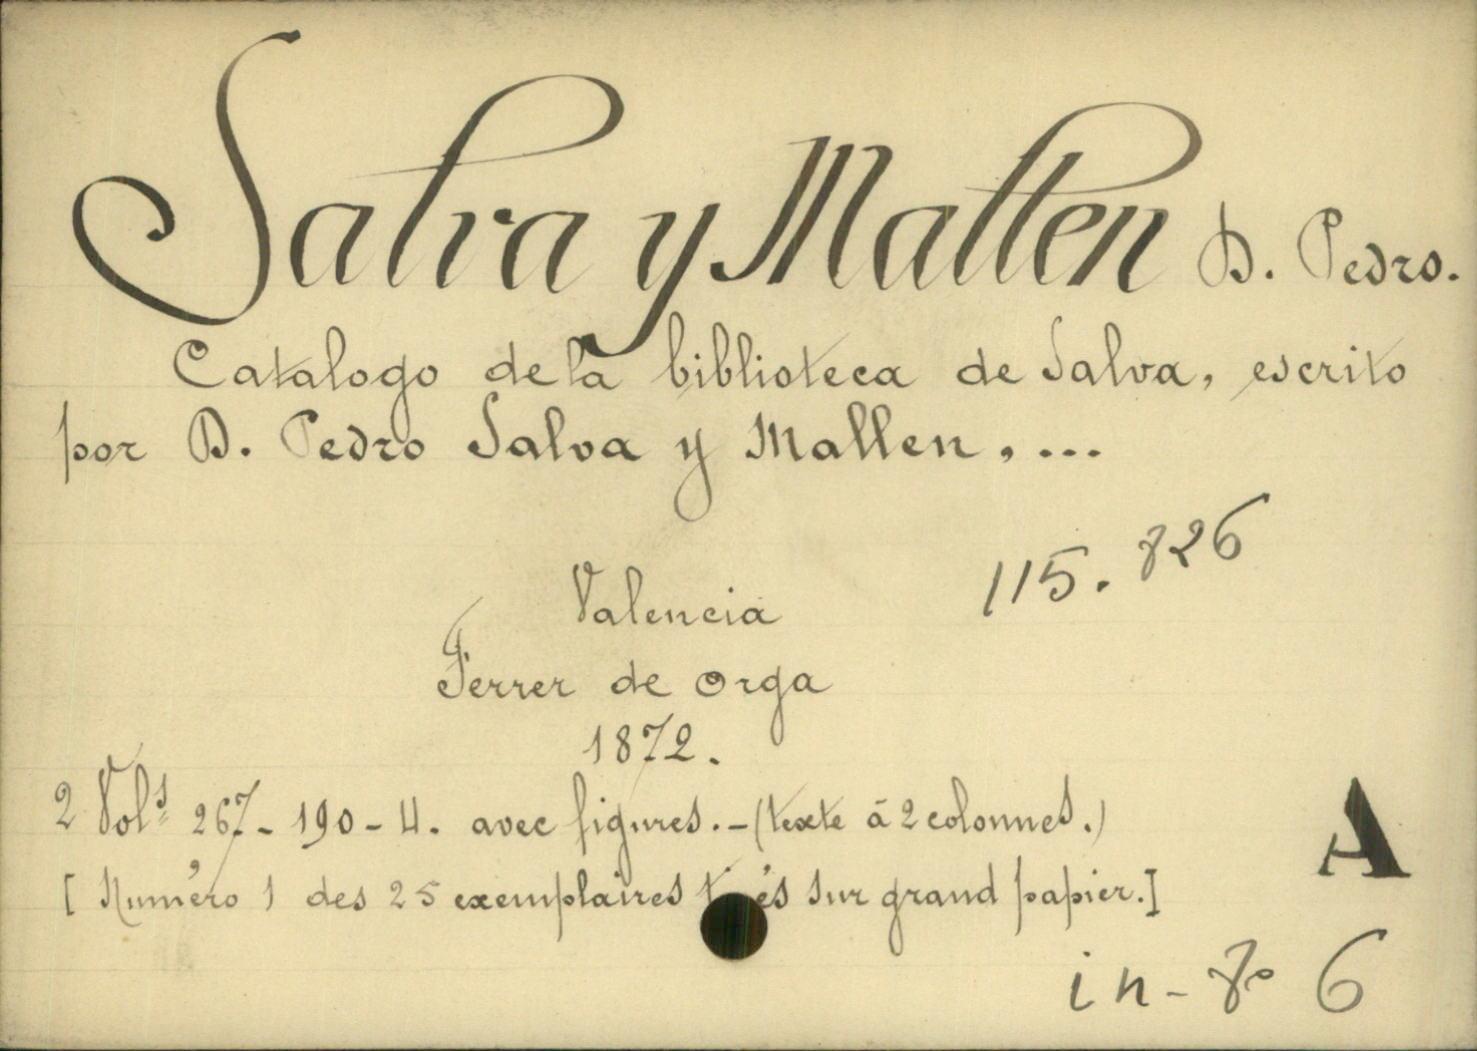 Salva y Mallen D. Pedro.
Catalogo de la biblioteca de Salva, escrito
por D. Pedro Salva y Mallen, ...
115.826
Valencia
Ferrer de Orga
1872.
2 Vols 267 - 190 - U. avec figures. - (texte à 2 colonnes.)
[Numéro 1 des 25 exemplaires sur grand papier.]
A
in-8° 6